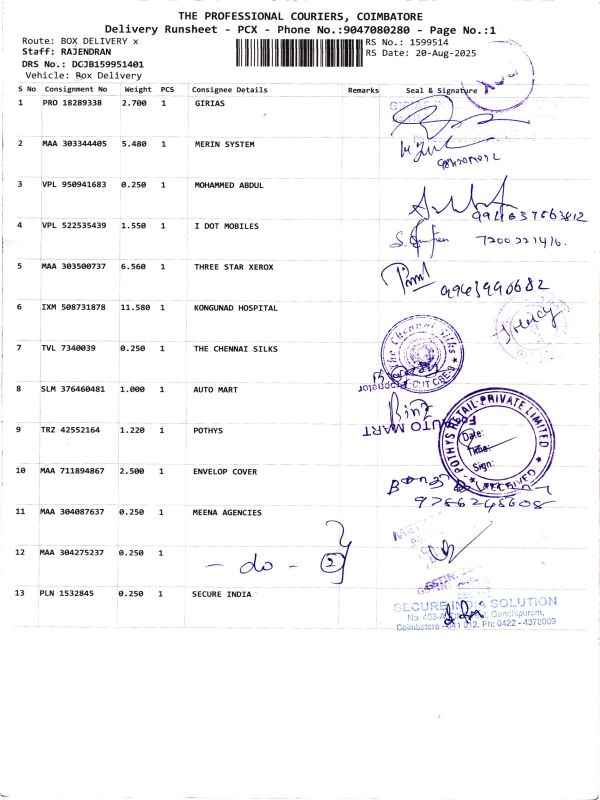 THE PROFESSIONAL COURIERS, COIMBATORE
Delivery Runsheet - PCX - Phone No.:9047080280 - Page No.:1
Route: BOX DELIVERY x
RS No.: 1599514
Staff: RAJENDRAN
RS Date: 20-Aug-2025
DRS No.: DCJB159951401
Vehicle: Box Delivery
S No Consignment No Weight PCS Consignee Details Remarks Seal & Signature
1 PRO 18289338 2.700 1 GIRIAS
2 MAA 303344405 5.480 1 MERIN SYSTEM
3 VPL 950941683 0.250 1 MOHAMMED ABDUL
4 VPL 522535439 1.550 1 I DOT MOBILES
5 MAA 303500737 6.560 1 THREE STAR XEROX
9963990682
6 IXM 508731878 11.580 1 KONGUNAD HOSPITAL
7 TVL 7340039 0.250 1 THE CHENNAI SILKS
The Chennai Silks
CBE-9
Proprietor
8 SLM 376460481 1.000 1 AUTO MART
For AUTO MART
9 TRZ 42552164 1.220 1 POTHYS
POTHYS RETAIL PRIVATE LIMITED
Date:
Time:
Sign:
RECEIVED
10 MAA 711894867 2.500 1 ENVELOP COVER
11 MAA 304087637 0.250 1 MEENA AGENCIES
12 MAA 304275237 0.250 1
- do - 2
13 PLN 1532845 0.250 1 SECURE INDIA
SECURE INDIA SOLUTION
No. 403- Gandhipuram,
Coimbatore - 641 012. Ph: 0422 - 4378009